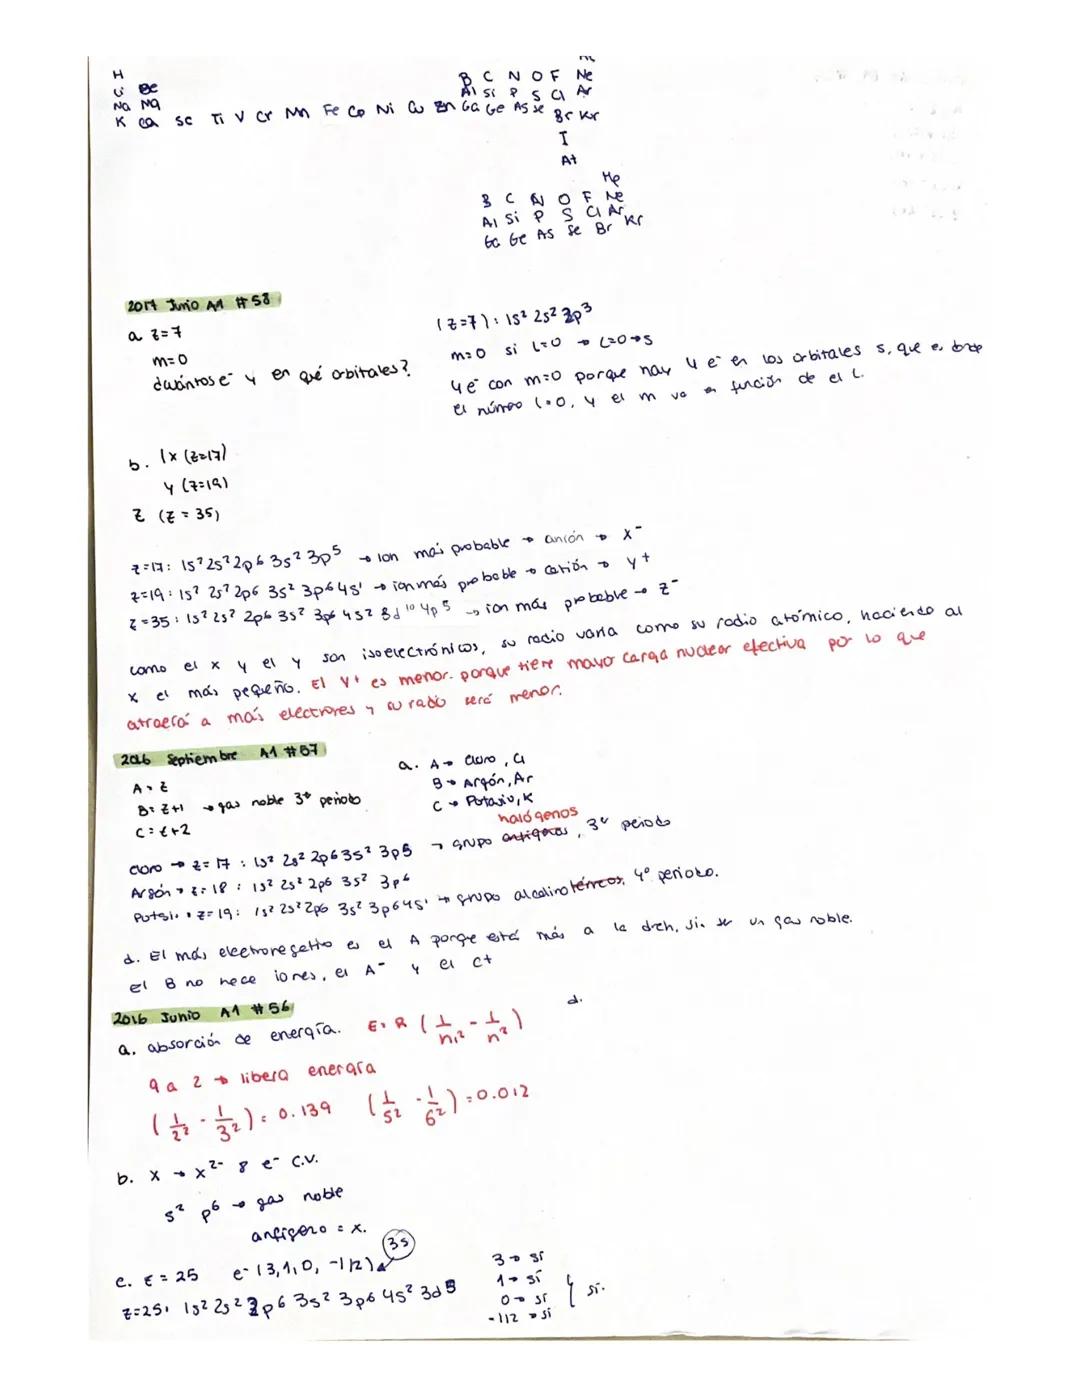 H
Li Be B C N O F Ne
Na Mg Al Si P S Cl Ar
K Ca Sc Ti V Cr Mn Fe Co Ni Cu Zn Ga Ge As Se Br Kr
I
At
He
B C N O F Ne
Al Si P S Cl Ar
Ga Ge As Se Br Kr
2017 Junio A1 #58
a z=7
m=0
¿cuántos e⁻ y en qué orbitales?
(z=7): 1s² 2s² 2p³
m=0 si l=0 → l=0→s
4e⁻ con m=0 porque hay 4 e⁻ en los orbitales s, que es donde
el número l=0, y el m va en función de el l.
b. 1x (z=17)
y (z=19)
z (z=35)
z=17: 1s² 2s² 2p⁶ 3s² 3p⁵ → ion más probable → anión → x⁻
z=19: 1s² 2s² 2p⁶ 3s² 3p⁶ 4s¹ → ion más probable → catión → y⁺
z=35: 1s² 2s² 2p⁶ 3s² 3p⁶ 4s² 3d¹⁰ 4p⁵ → ion más probable → z⁻
como el x y el y son isoelectrónicos, su radio varía como su radio atómico, haciendo al
x el más pequeño. El Y⁺ es menor. porque tiene mayor carga nuclear efectiva por lo que
atraerá a más electrones y su radio será menor.
2016 Septiembre A1 #57
A = z
B = z+1 → gas noble 3º periodo
C = z+2
a. A → Cloro, Cl
B → Argón, Ar
C → Potasio, K
halógenos
cloro → z=17: 1s² 2s² 2p⁶ 3s² 3p⁵ → grupo anfígenos, 3º periodo
Argón → z=18: 1s² 2s² 2p⁶ 3s² 3p⁶
Potasio → z=19: 1s² 2s² 2p⁶ 3s² 3p⁶ 4s¹ → grupo alcalinotérreos, 4º periodo.
d. El más electronegativo es el A porque está más a la drch, sin ser un gas noble.
el B no hece iones, el A⁻ y el C+
2016 Junio A1 #56
a. absorción de energía. E = R (1/n₁² - 1/n²)
d.
9 a 2 → libera energía
(1/2² - 1/3²) = 0.139 (1/5² - 1/6²) = 0.012
b. x → x²⁻ 8 e⁻ C.V.
s² p⁶ → gas noble
anfígeno = x.
c. z = 25 e⁻ (3,1,0,-1/2) 3s
z=25: 1s² 2s² 2p⁶ 3s² 3p⁶ 4s² 3d⁵
3 → sí
1 → sí
0 → sí
-1/2 → sí
} sí.